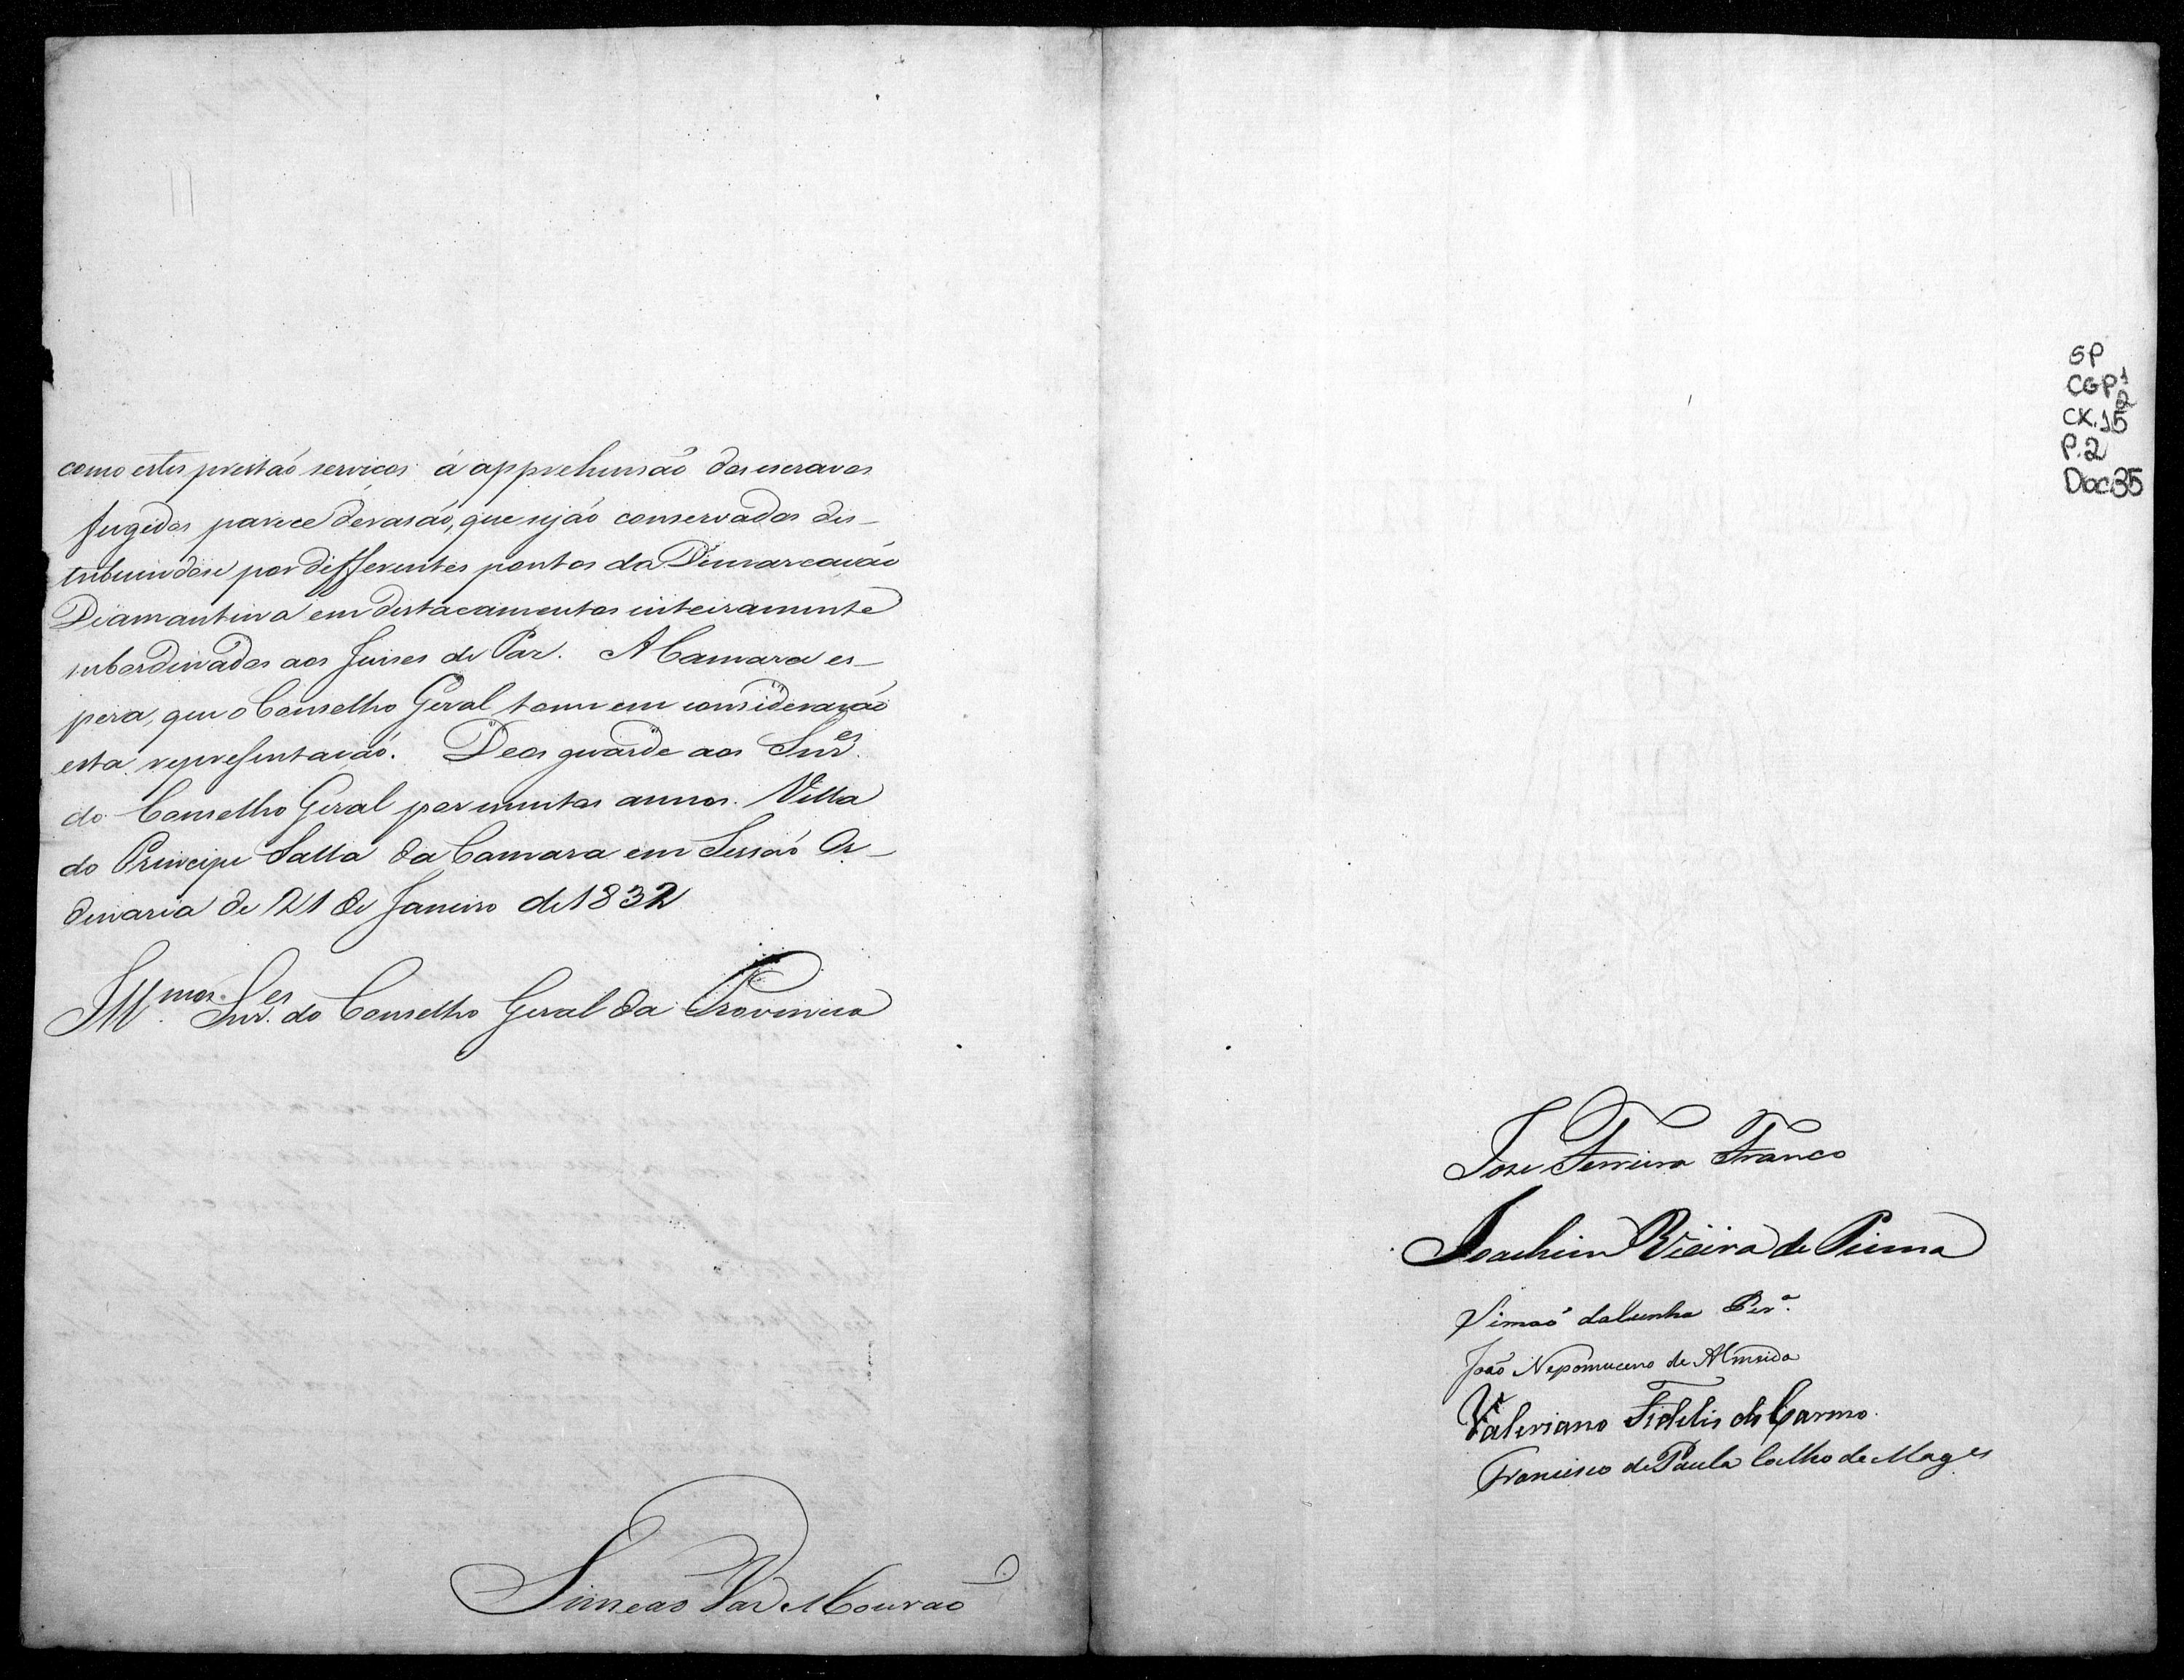 como estes prestaõ serviços á apprehensaõ dos escravos
fugidos parece derasáo, que sejáo conservados des-
tribuindose por differentes pontos da Dimarcaçáo
Diamantina em destacamentos inteiramente
subordinados aos Juises de Paz. A Camara es-
pera, que o Conselho Geral tome em consideraçáo
esta representaçáo. Deos guarde aos Snr.es
do Conselho Geral por muitos annos. Villa
do Principe Salla da Camara em Sessáo Or-
dinaria de 21 de Janeiro de 1832
Ill.mos Snr.es do Conselho Geral da Provincia
Simeaõ Vaz Mouraõ
SP
CGP1
2
CX.15
P.2
Doc.35
Jose Ferreira Franco
Joachim Vieira de Piuma
Simaõ daCunha Per.a
João Nepomuceno de Almeida
Valeriano Fidelis do Carmo.
Francisco de Paula Coelho de Mag.es